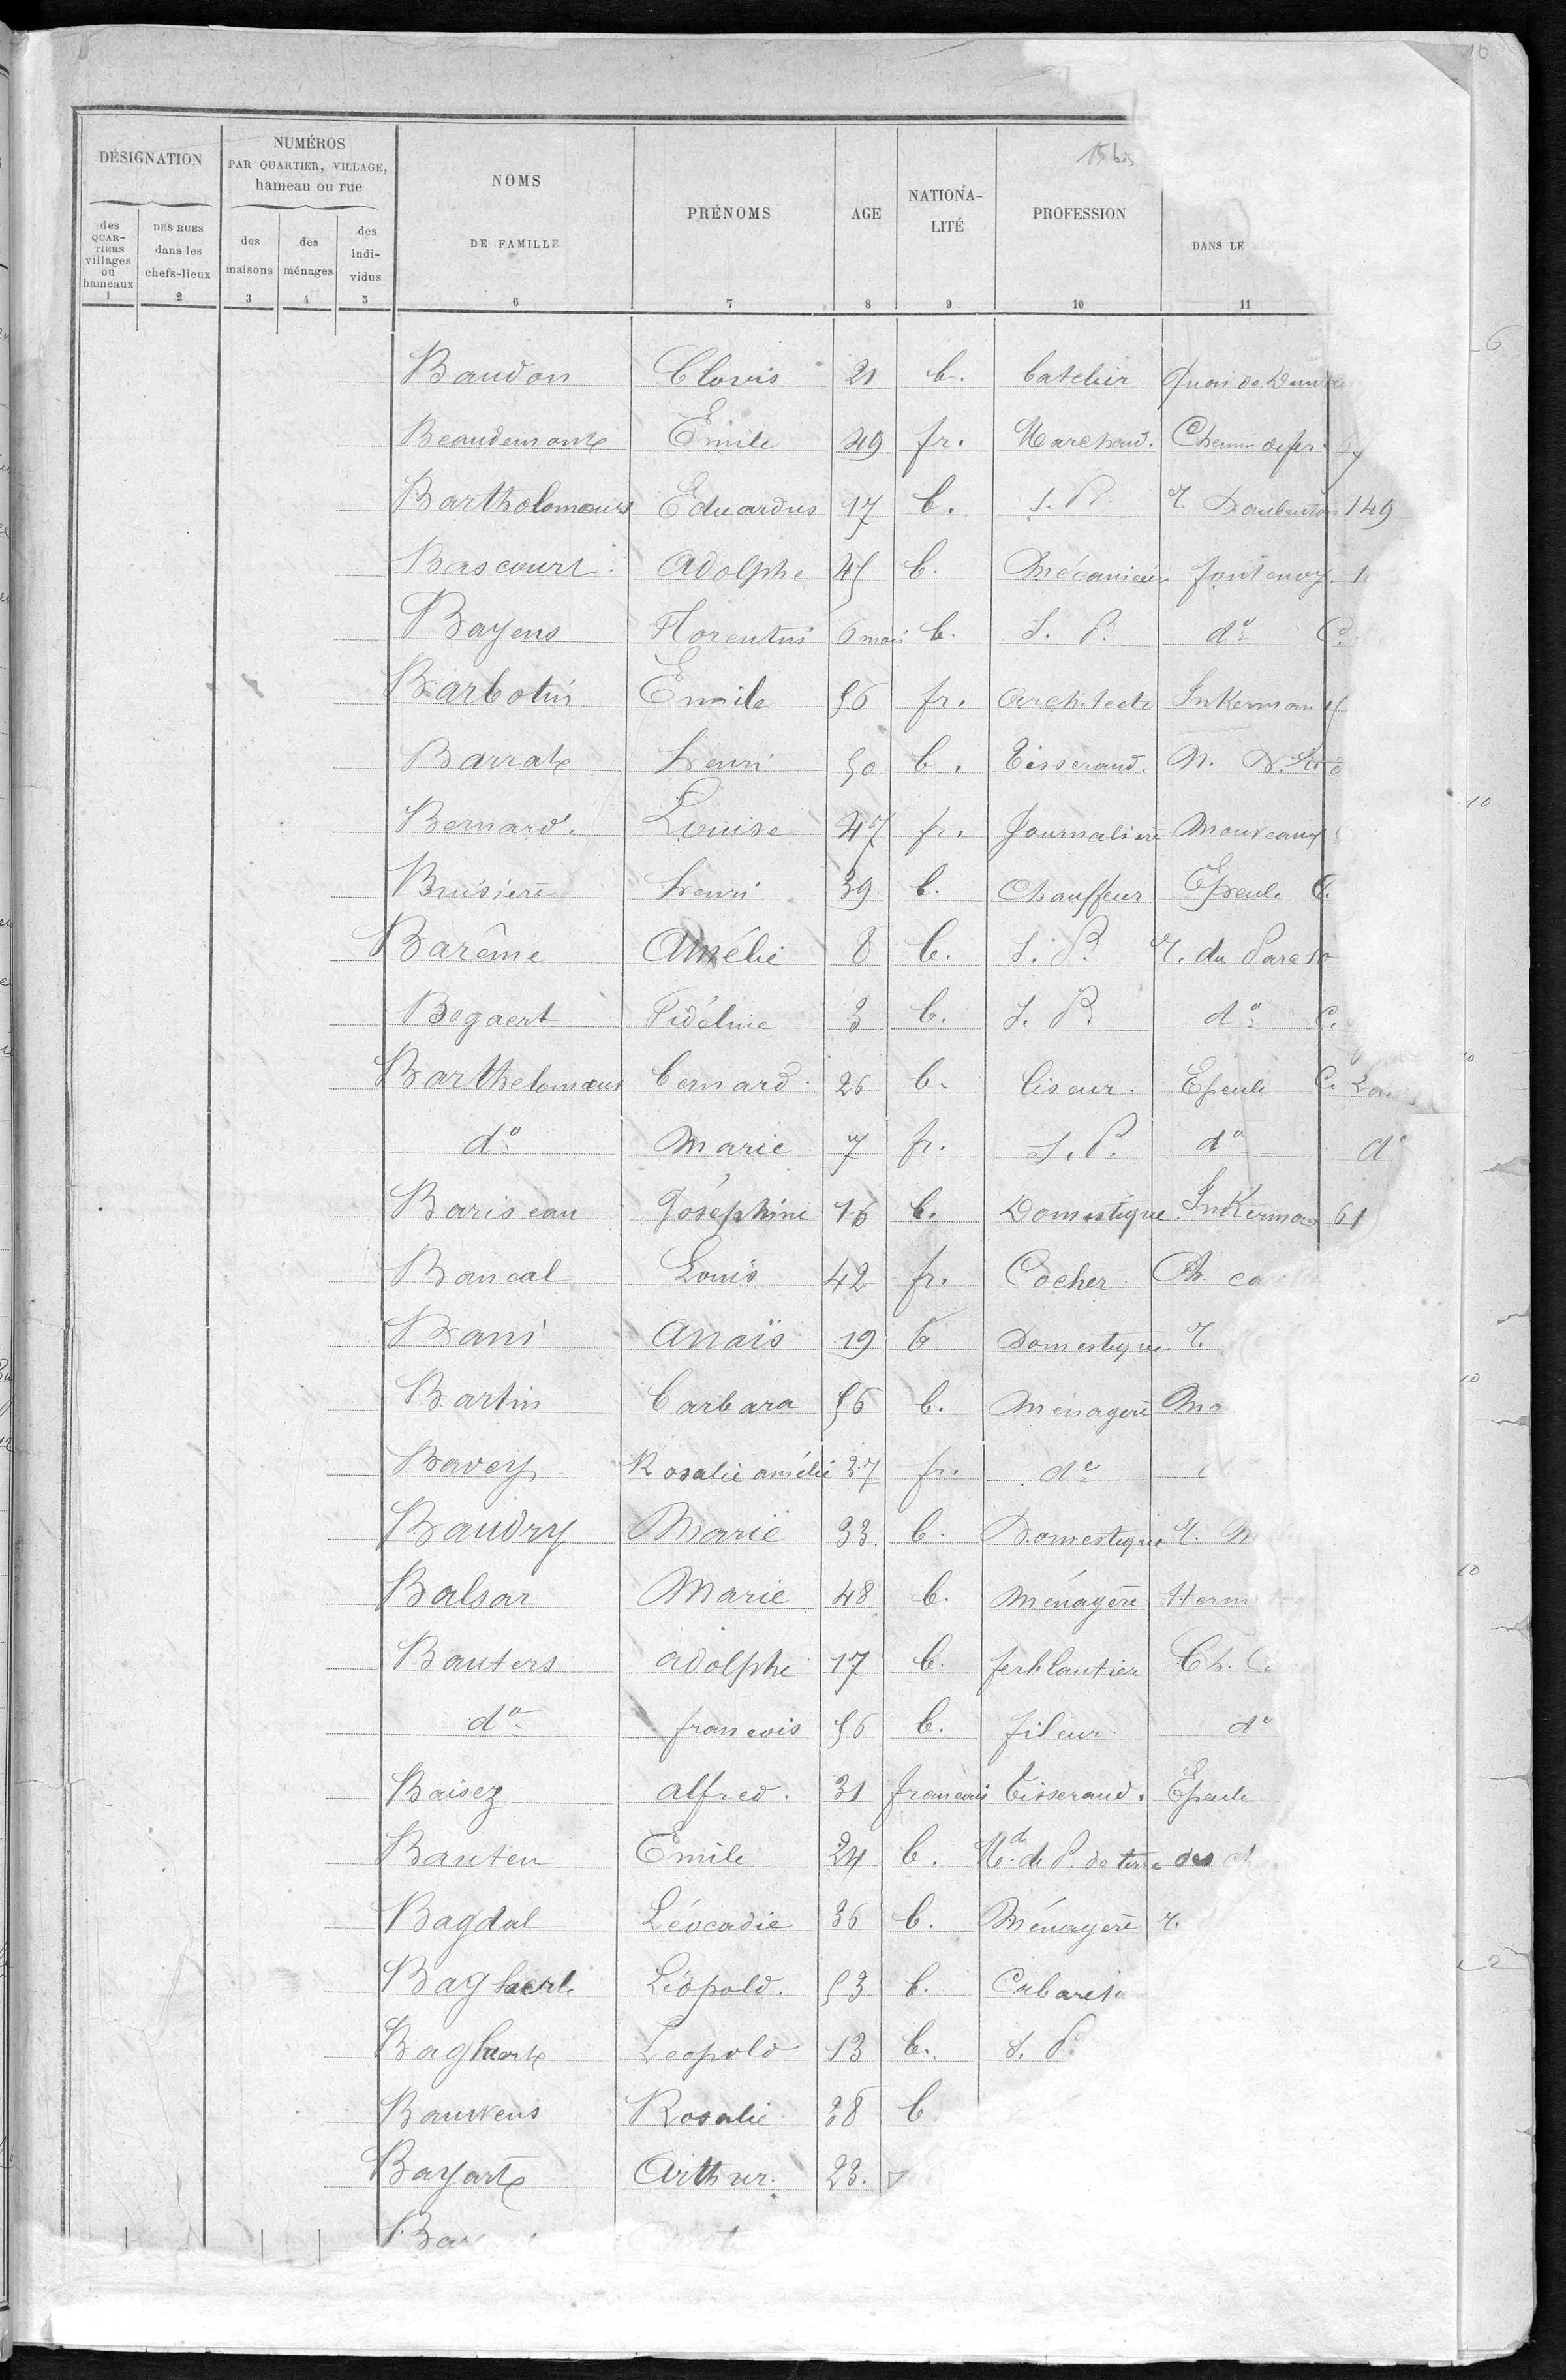 10
15 bis
DÉSIGNATION
NUMÉROS
PAR QUARTIER, VILLAGE,
hameau ou rue
NOMS
DE FAMILLE
PRÉNOMS
AGE
NATIONA-
LITÉ
PROFESSION
DANS LE
des
QUAR-
TIERS
villages
ou
hameaux
DES RUES
dans les
chefs-lieux
des
maisons
des
ménages
des
indi-
vidus
1 2 3 4 5 6 7 8 9 10 11
Baudon Clovis 21 b. batelier Quai de
Beaudemont Emile 49 fr. Marchand. Chemin de fer
Bartholomeus Eduardus 17 b. S. P. r. Daubenton 149
Bascourt Adolphe 45 b. Mécanicien fontenoy.
Bayens Florentin 6 mois b. S. P. do C.
Barbotin Emile 56 fr. Architecte Inkerman
Barrat henri 50 b. Tisserand. N. D.
Bernard. Louise 47 fr. Journalière Mouveaux
Buisière henri 39 b. Chauffeur Epeule C.
Barême Amélie 8 b. S. P. r. du Parc
Bogaert Fidéline 3 b. S. P. do C.
Barthelomeus bernard 26 b. liseur. Epeule C.
do Marie 7 fr. S. P. do do
Bariseau Joséphine 16 b. Domestique Inkerman 61
Bancal Louis 42 fr. Cocher
Bani Anaïs 19 b Domestique r.
Bartin barbara 56 b. Ménagère
Bavey Rosalie amélie 37 fr. do
Baudry Marie 33. b. Domestique r.
Balsar Marie 48 b. Ménagère
Bauters adolphe 17 b. ferblantier Ch.
do francois 56 b. fileur. do
Baisez alfred. 31 francais Tisserand. Epeule
Bauten Emile 24 b. Md. de P. de terre des
Bagdal Léocadie 36 b. Ménagère r.
Baghaert Léopold. 53 b.
Baghaert Leopold 13 b. S. P.
Bauwens Rosalie 38 b
Bayart Arthur. 23.